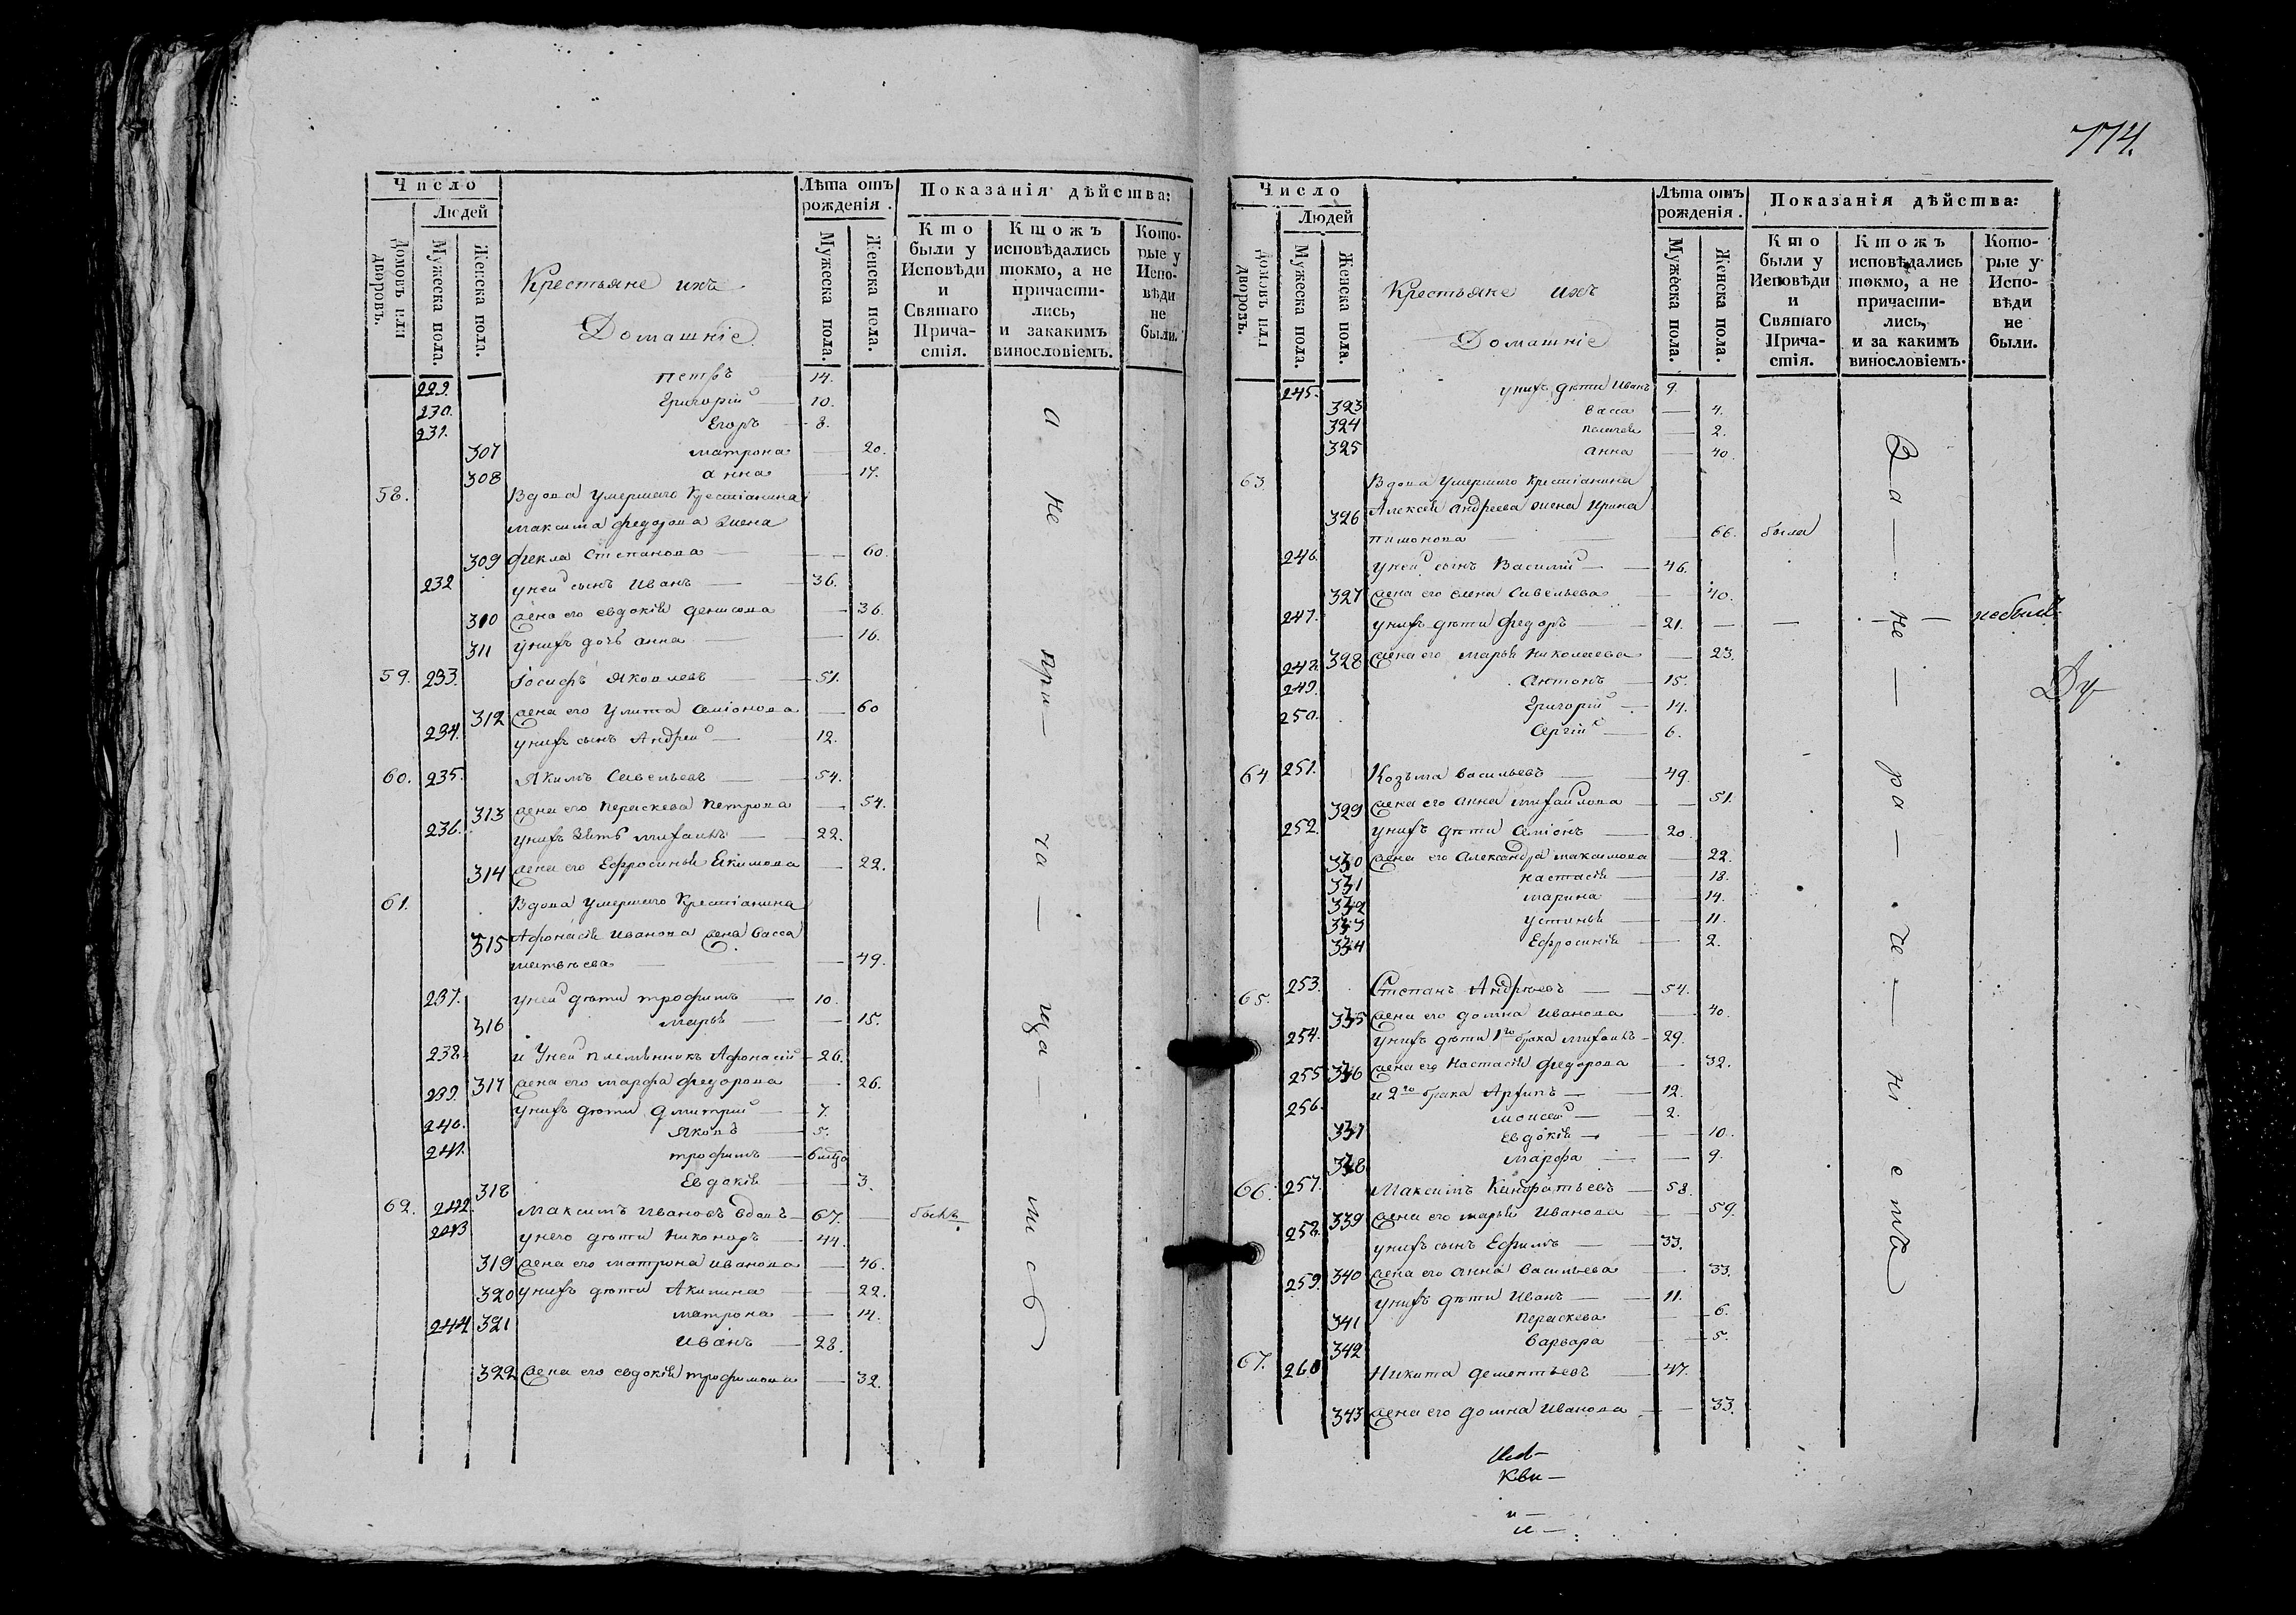 774.
Число
Людей
Домовъ или дворовъ.
Мужеска пола.
Женска пола.
Крестьяне ихъ
Домашніе
Лѣта отъ рожденія.
Мужеска пола.
Женска пола.
Показанія дѣйства:
Кто были у Исповѣди и Святаго Прича-стія.
Ктожъ исповѣдались токмо, а не причасти-лись, и закакимъ винословіемъ.
Кото-рые у Испо-вѣди не были.
229. Петръ 14.
230. Григорій 10.
231. Егоръ 8.
307 матрона 20.
308 анна 17.
58. Вдова умершаго Крестіанина
Максима федорова жена
309 фекла Степанова 60.
232 у ней сынъ Иванъ 36.
310 жена его евдокія денисова 36.
311 у нихъ дочь анна 16.
59. 233. Іосифъ Яковлевъ 51.
312 жена его Улита Семіонова 60
234. у нихъ сынъ Андрей 12.
60. 235. Якимъ Савельевъ 54.
313 жена его Параскева Петрова 54.
236. у нихъ зять михаилъ 22.
314 жена его Ефросинья Екимова 22.
61. Вдова умершаго Крестіанина
315 Афонасія Иванова жена васса
матвѣева 49.
237. у ней дѣти трофимъ 10.
316 марья 15.
238. и у ней племѣнникъ Афонасій 26.
317 жена его марфа федорова 26.
239. у нихъ дѣти дмитрій 7.
240. Яковъ 5.
241. трофимъ
318 Евдокія 3.
62. 242. Максимъ Ивановъ вдовъ 67. былъ
243 у него дѣти Никоноръ 44.
319 жена его матрона иванова 46.
320 у нихъ дѣти Акилина 22.
321 матрона 14.
244 Иванъ 28.
322 жена его евдокія трофимова 32.
а не при-ча-ща-лись
Число
Людей
Домовъ или дворовъ.
Мужеска пола
Женска пола.
Крестьяне ихъ
Домашніе
Лѣта отъ рожденія.
Мужеска пола.
Женска пола.
Показанія дѣйства:
Кто были у Исповѣди и Святаго Прича-стія.
Ктожъ исповѣдались токмо, а не причасти-лись, и за какимъ винословіемъ.
Кото-рые у Испо-вѣди не были.
245. у нихъ дѣти Иванъ 9.
323 васса 4.
324 пелагея 2.
325 анна 40.
63. Вдова умершаго Крестіанина
326 Алексея андреева жена Ирина
66. была
246. у ней сынъ Василій 46.
327 жена его елена Савельева 40.
247. у нихъ дѣти федоръ 21. небылъ.
328 жена его марья николаева 23.
248. антонъ 15.
249. Григорій 14.
250. Сергій 6.
64 251. Козьма васильевъ 49.
329 жена его анна михайлова 51.
252. у нихъ дѣти Семіонъ 20.
330 жена его александра максимова 22.
331 настасія 18.
332 марина 14.
333 устинья 11.
334 Ефросинія 2.
65. 253. Степанъ Андрѣевъ 54.
335 жена его домна Иванова 40.
254. у нихъ дѣти 1го брака михаилъ 29.
336 жена его Настасія федорова 32.
255 и 2го брака Архипъ 12.
256. моисей 2.
337 евдокія 10.
338 марфа 9.
66. 257. Максимъ Кондратьевъ 58.
339 жена его марья Иванова 59.
258. у нихъ сынъ Ефимъ 33.
340 жена его анна васильева 33.
259. у нихъ дѣти Иванъ 11.
341 Параскева 6.
342 варвара 5.
67. 260 Никита дементьевъ 47.
343 жена его домна Иванова 33.
За-не-ра-че-ніемъ
Ду